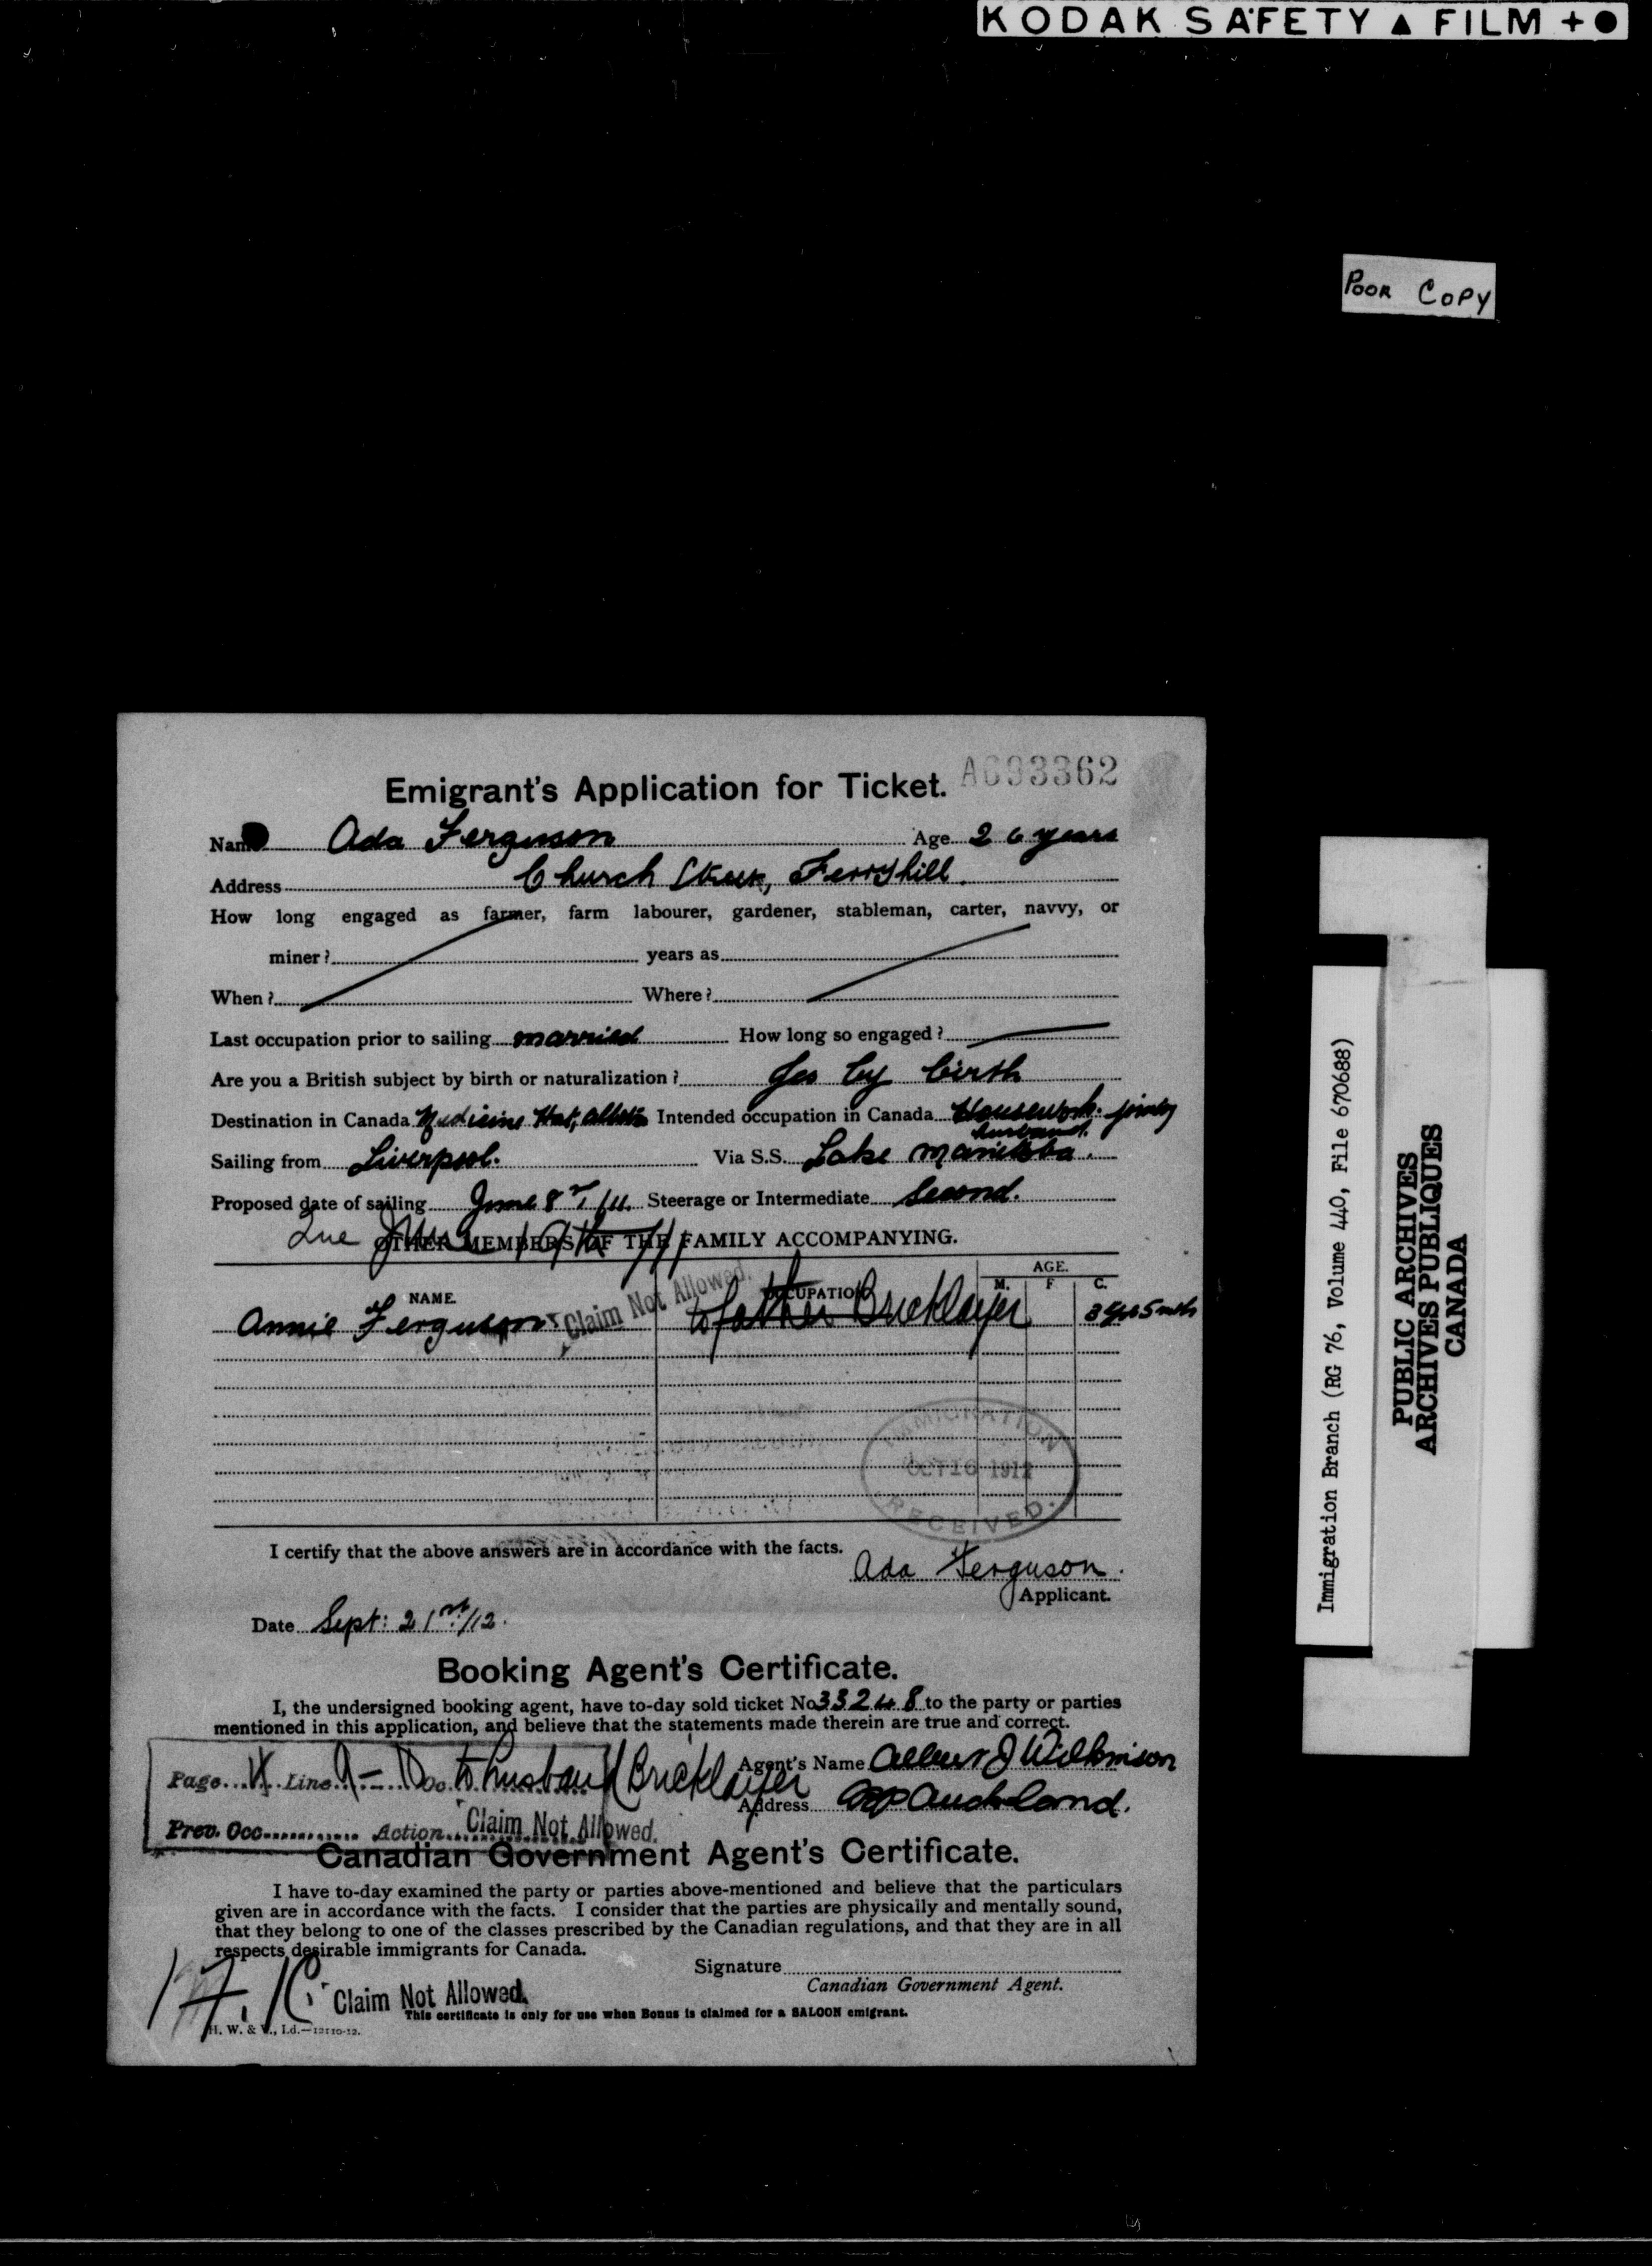 KODAK SAFETY ▲ FILM + ●
POOR COPY
Emigrant's Application for Ticket. A693362
Name Ada Ferguson Age 26 years
Address Church Street, Ferryhill.
How long engaged as farmer, farm labourer, gardener, stableman, carter, navvy, or
miner? years as
When? Where?
Last occupation prior to sailing married How long so engaged?
Are you a British subject by birth or naturalization? Yes by birth
Destination in Canada Medicine Hat, Alberta Intended occupation in Canada Housework. joining
husband.
Sailing from Liverpool. Via S.S. Lake Manitoba.
Proposed date of sailing June 8 Steerage or Intermediate Second.
Due June 19th/11
OTHER MEMBERS OF THE FAMILY ACCOMPANYING.
AGE.
NAME. OCCUPATION M. F. C.
Annie Ferguson Claim Not Allowed. to father Bricklayer 3 yrs 5 mths
IMMIGRATION
OCT 16 191
RECEIVED.
I certify that the above answers are in accordance with the facts.
Ada Ferguson.
Applicant.
Date Sept: 21st/12.
Booking Agent's Certificate.
I, the undersigned booking agent, have to-day sold ticket No 33248 to the party or parties
mentioned in this application, and believe that the statements made therein are true and correct.
Agent's Name Albert J Wilkinson
Page Line Occ. to husband Bricklayer
Address Bp Auckland.
Prev. Occ. Action Claim Not Allowed.
Canadian Government Agent's Certificate.
I have to-day examined the party or parties above-mentioned and believe that the particulars
given are in accordance with the facts. I consider that the parties are physically and mentally sound,
that they belong to one of the classes prescribed by the Canadian regulations, and that they are in all
respects desirable immigrants for Canada.
Signature
Canadian Government Agent.
Claim Not Allowed.
This certificate is only for use when Bonus is claimed for a SALOON emigrant.
H. W. & V., Ld.—12110-12.
Immigration Branch (RG 76, Volume 440, File 670688)
PUBLIC ARCHIVES
ARCHIVES PUBLIQUES
CANADA